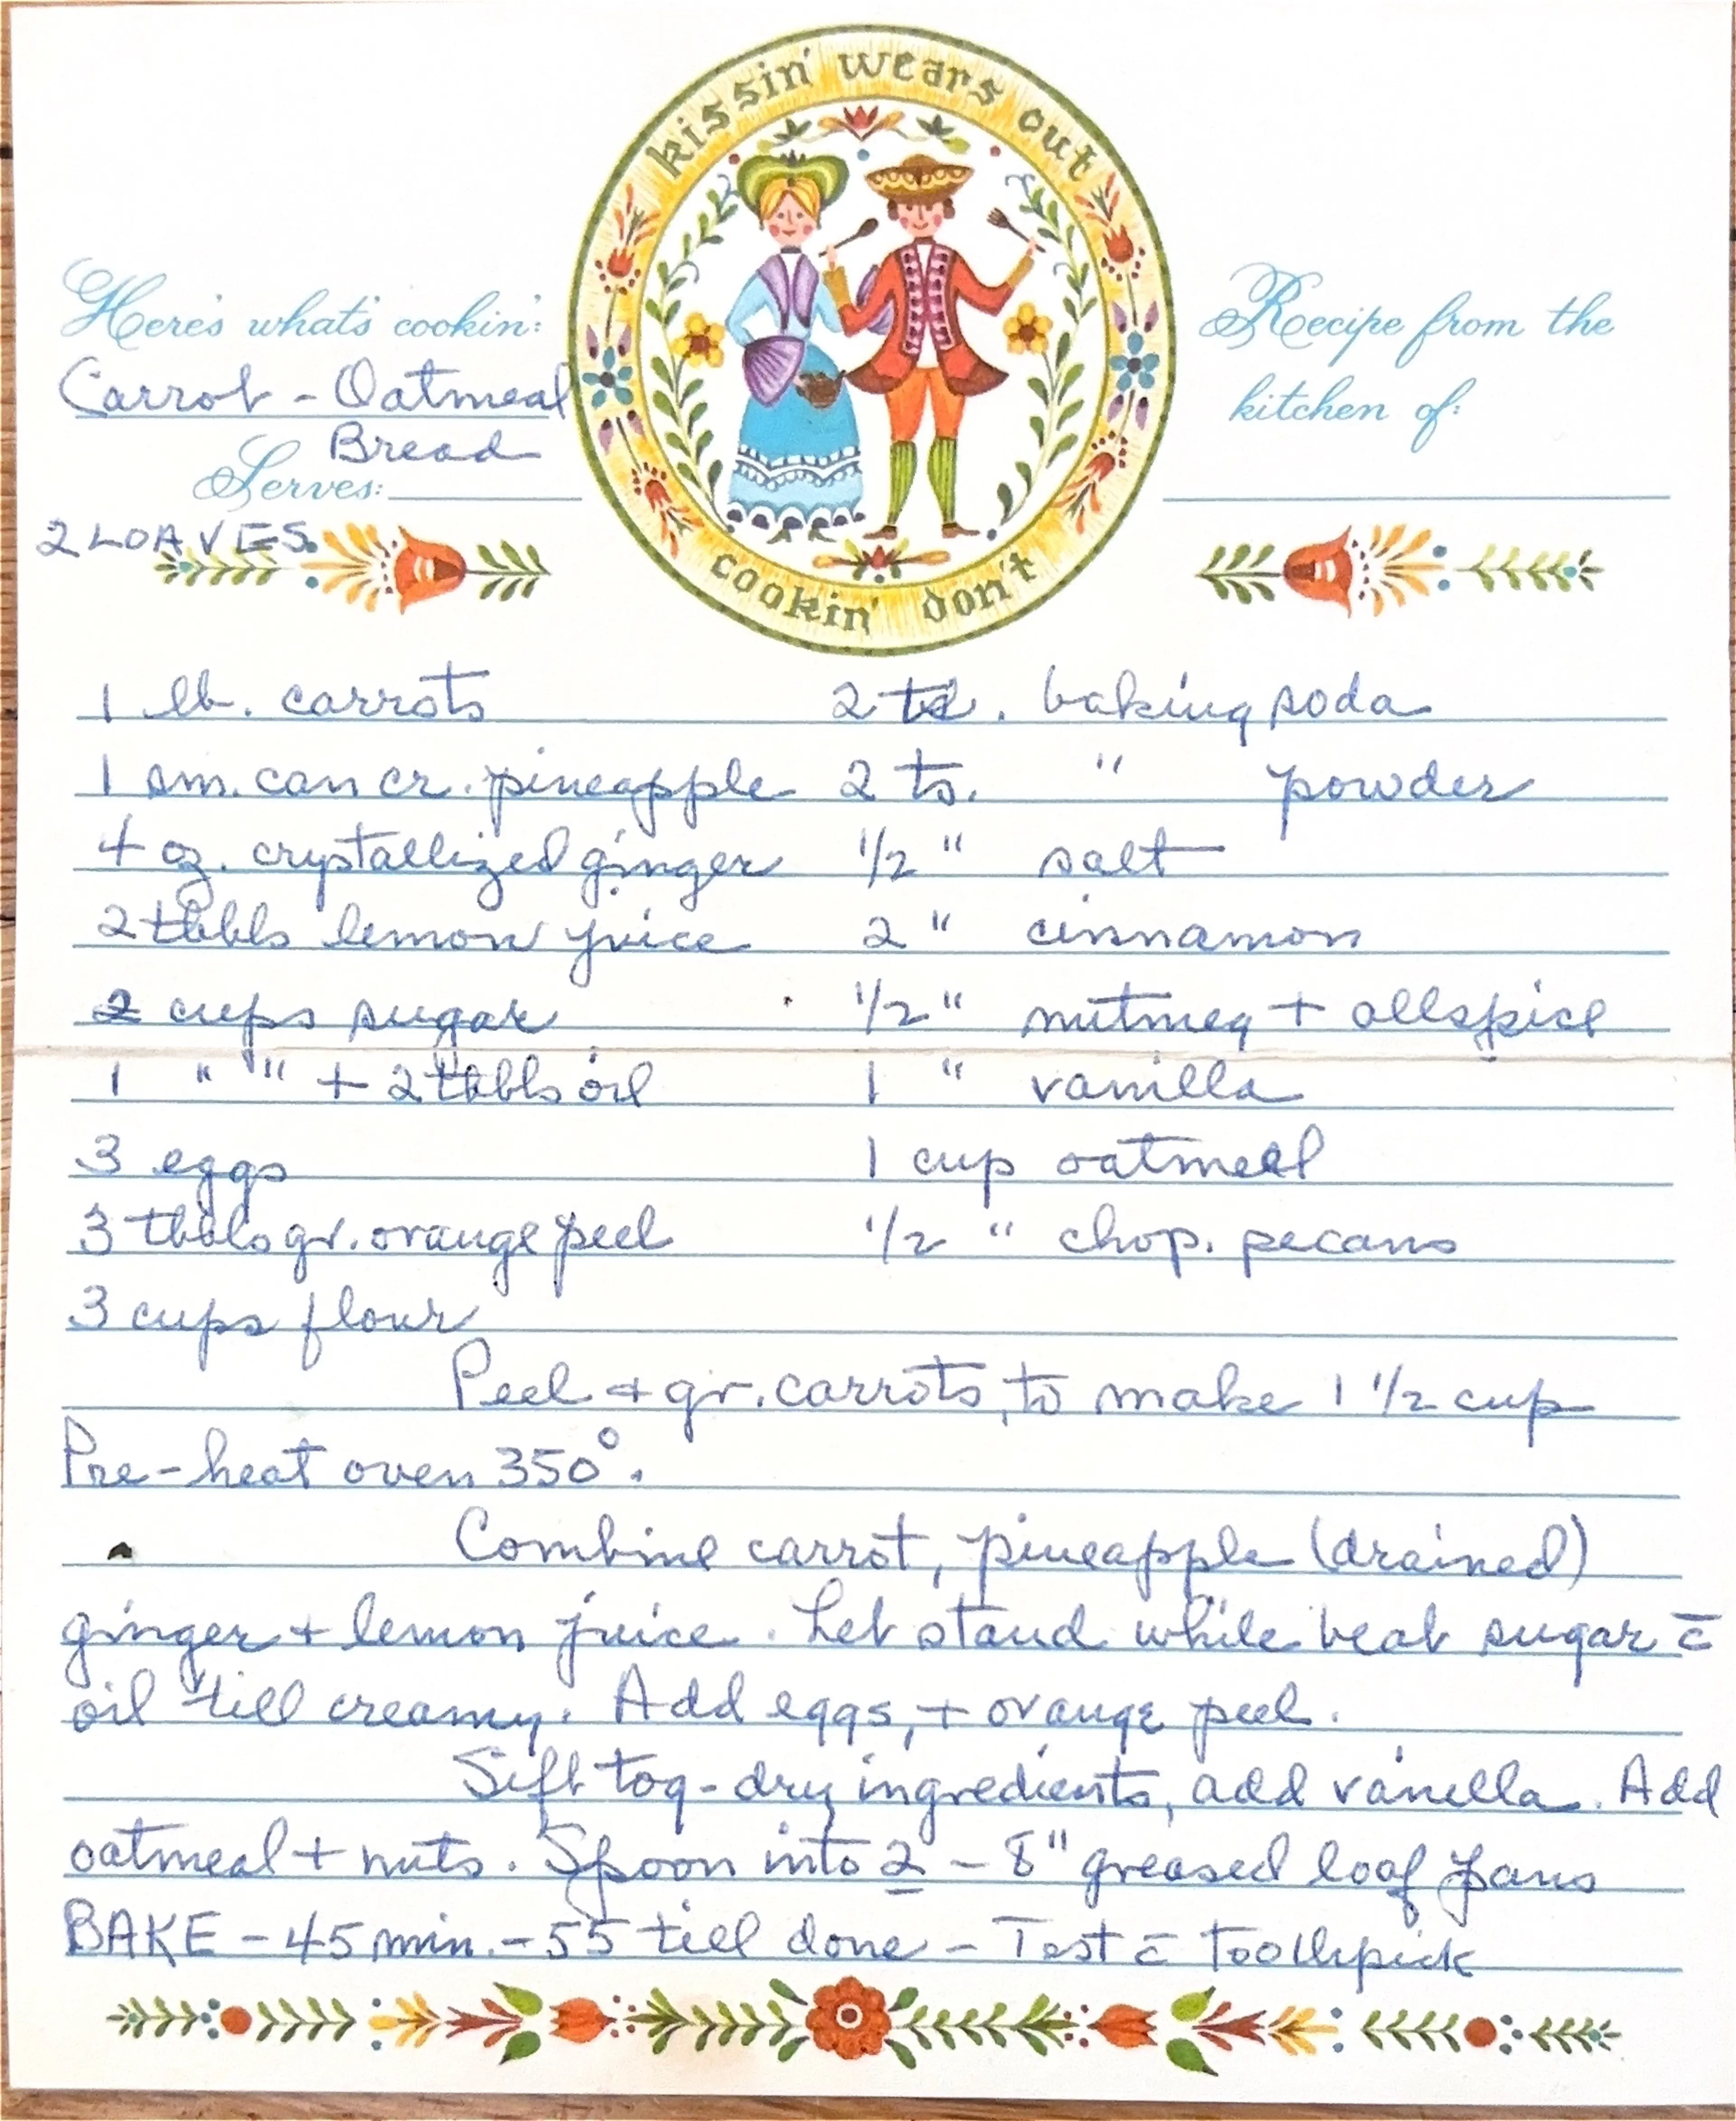 kissin' wears out
cookin' don't
Here's what's cookin':
Carrot - Oatmeal
Bread
Serves:
2 LOAVES
Recipe from the
kitchen of:
1 lb. carrots
1 sm. can cr. pineapple
4 oz. crystallized ginger
2 tbbls lemon juice
2 cups sugar
1 " " + 2 tbbls oil
3 eggs
3 tbbls gr. orange peel
3 cups flour
2 ts. baking soda
2 ts. " powder
1/2 " salt
2 " cinnamon
1/2 " nutmeg + allspice
1 " vanilla
1 cup oatmeal
1/2 " chop. pecans
Peel + gr. carrots, to make 1 1/2 cup
Pre-heat oven 350°.
Combine carrot, pineapple (drained)
ginger + lemon juice. Let stand while beat sugar c̄
oil till creamy. Add eggs, + orange peel.
Sift tog- dry ingredients, add vanilla. Add
oatmeal + nuts. Spoon into 2 - 8" greased loaf pans
BAKE - 45 min. - 55 till done - Test c̄ toothpick